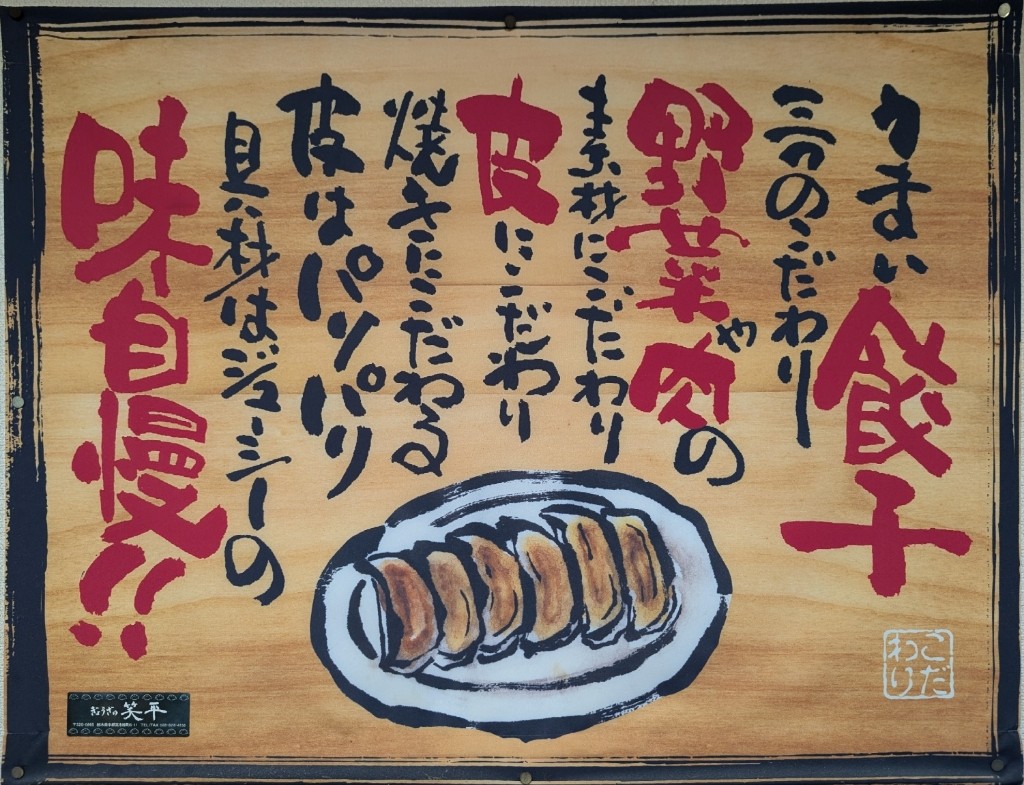 うまい餃子
三つのこだわり
野菜や肉の
素材にこだわり
皮にこだわり
焼きにこだわる
皮はパリパリ
具材はジューシーの
味自慢!!
こだわり
ぎょうざの笑平